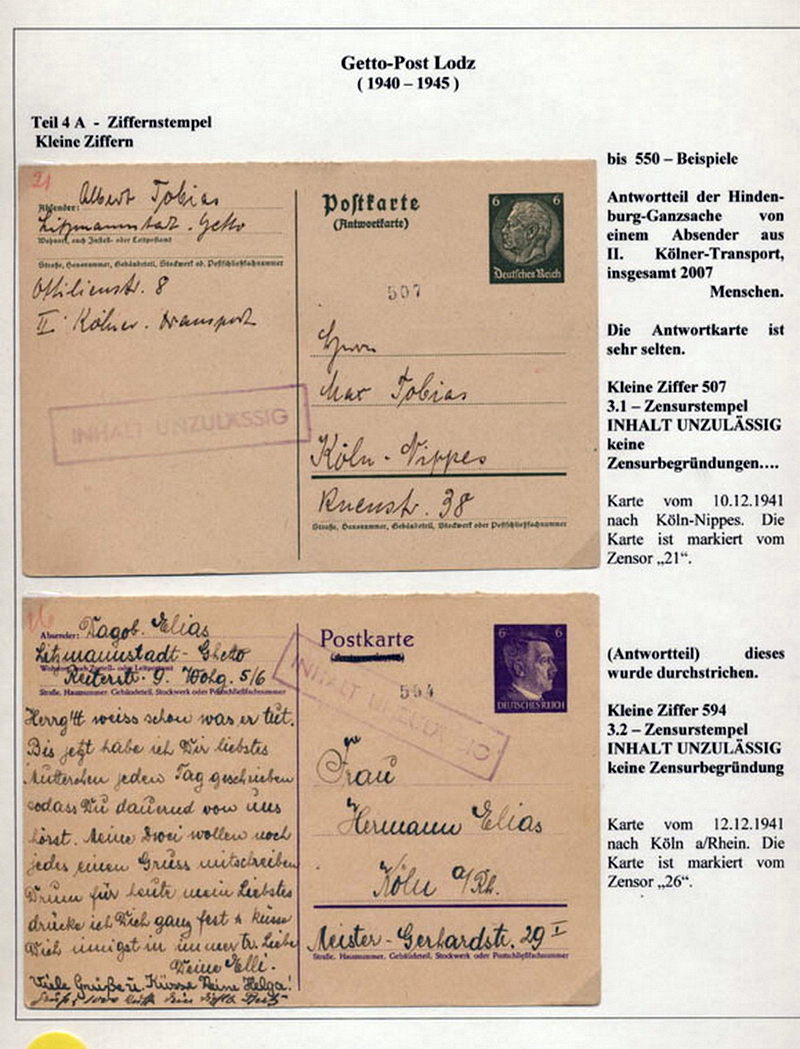 Getto-Post Lodz
( 1940 – 1945 )
Teil 4 A - Ziffernstempel
Kleine Ziffern
bis 550 – Beispiele
Antwortteil der Hinden-
burg-Ganzsache von
einem Absender aus
II. Kölner-Transport,
insgesamt 2007
Menschen.
Die Antwortkarte ist
sehr selten.
Kleine Ziffer 507
3.1 – Zensurstempel
INHALT UNZULÄSSIG
keine
Zensurbegründungen....
Karte vom 10.12.1941
nach Köln-Nippes. Die
Karte ist markiert vom
Zensor „21“.
21
Absender: Albert Tobias
Litzmannstat. Getto
Wohnort, auch Zustell- oder Leitpostamt
Straße, Hausnummer, Gebäudeteil, Stockwerk od. Postschließfachnummer
Ottilienstr. 8
II. Kölner. transport
INHALT UNZULÄSSIG
Postkarte
(Antwortkarte)
6 6
Deutsches Reich
507
Herrn
Max Tobias
Köln-Nippes
38
Straße, Hausnummer, Gebäudeteil, Stockwerk oder Postschließfachnummer
(Antwortteil) dieses
wurde durchstrichen.
Kleine Ziffer 594
3.2 – Zensurstempel
INHALT UNZULÄSSIG
keine Zensurbegründung
Karte vom 12.12.1941
nach Köln a/Rhein. Die
Karte ist markiert vom
Zensor „26“.
26
Absender: Dagob. Elias
Litzmannstadt-Gheto
Wohnort, auch Zustell- oder Leitpostamt
Reiterstr. 9. Wohg. 5/6
Straße, Hausnummer, Gebäudeteil, Stockwerk oder Postschließfachnummer
Herrg'tt weiss schon was er tut.
Bis jetzt habe ich Dir liebstes
Mutterchen jeden Tag geschrieben
sodass Du dauernd von uns
hörst. Meine Zwei wollen noch
jedes einen Gruss mitschreiben
Drum für heute mein Liebstes
drücke ich Dich ganz fest & küsse
Dich innigst in immer tr. Liebe
Deine Elli.
Viele Grüße u. Küsse Deine Helga!
Postkarte
6 6
DEUTSCHES REICH
INHALT UNZULÄSSIG
594
Frau
Hermann Elias
Köln a/Rh.
Meister-Gerhardstr. 29 I
Straße, Hausnummer, Gebäudeteil, Stockwerk oder Postschließfachnummer